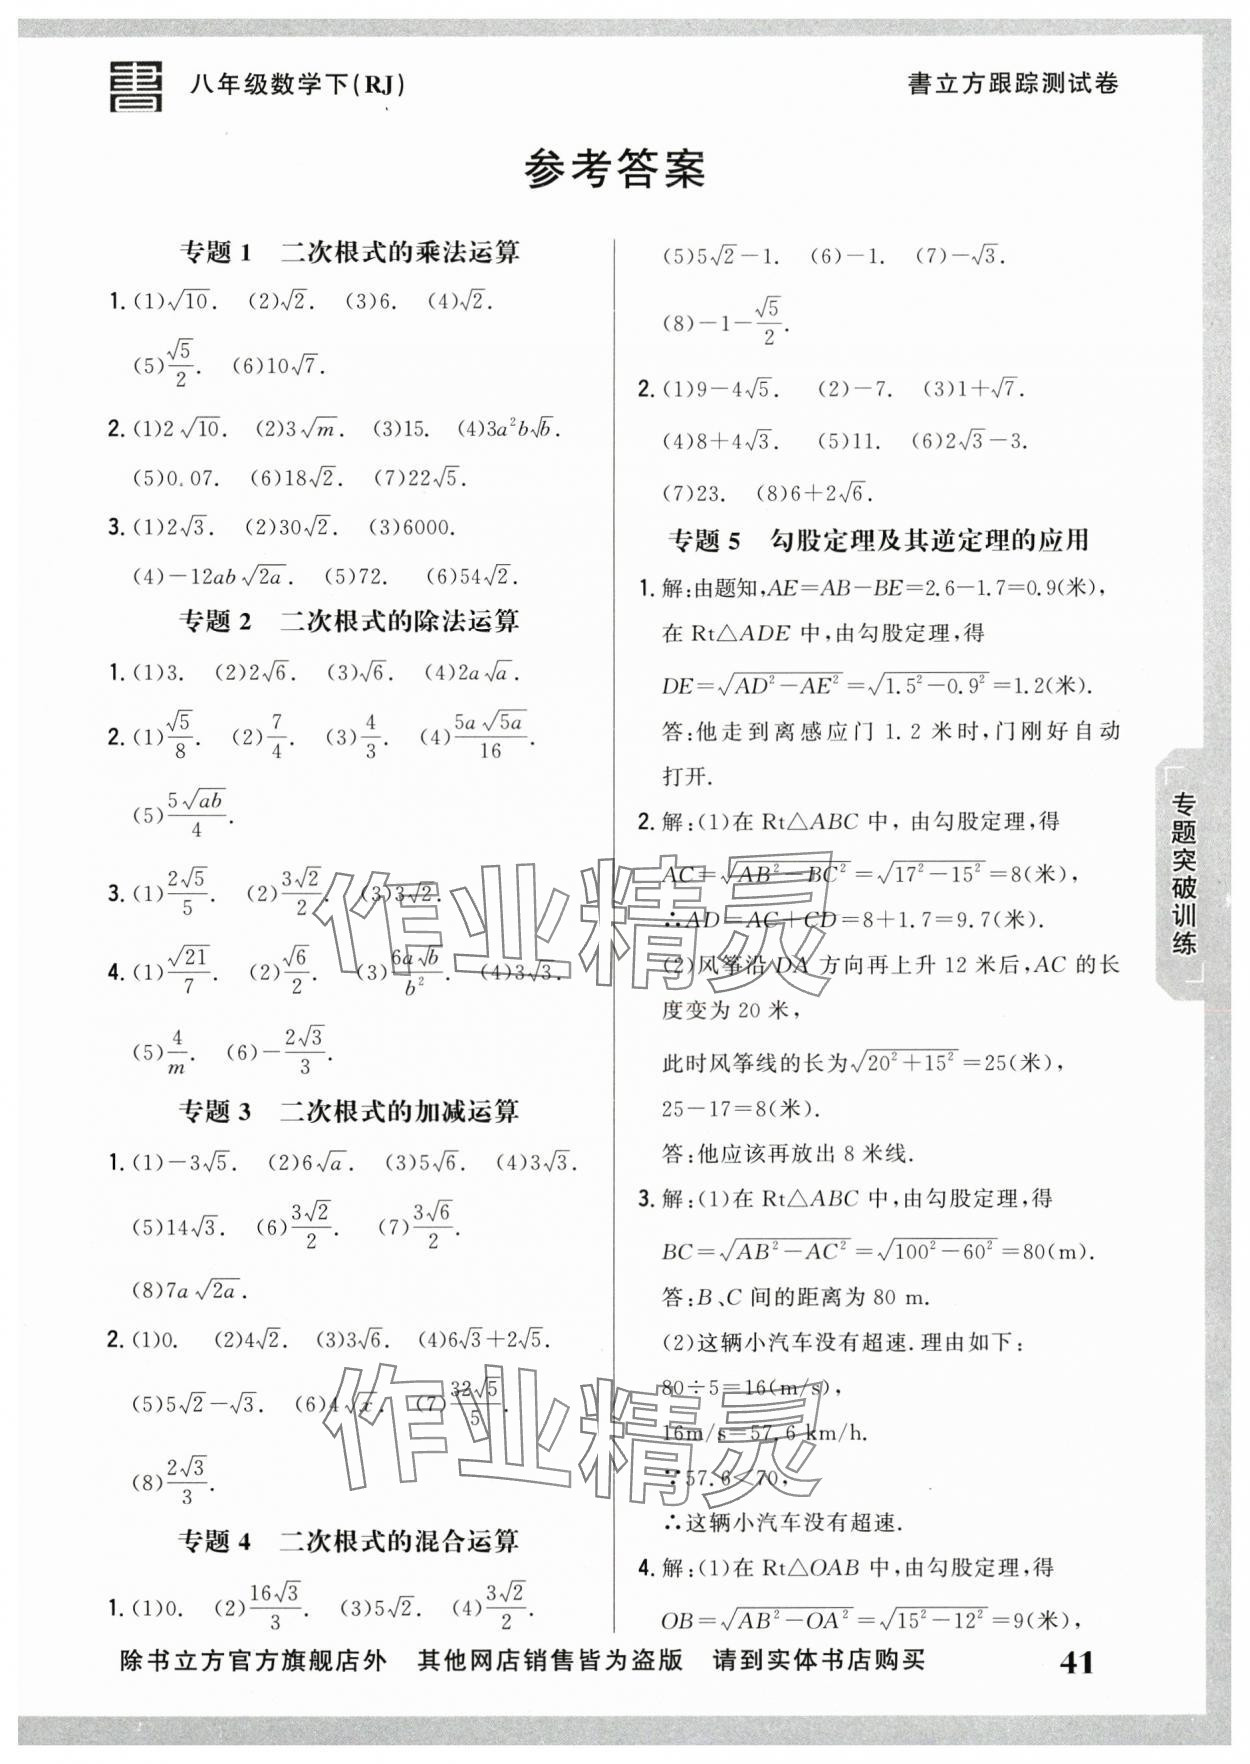 書 八年级数学下(RJ)
書立方跟踪测试卷
参考答案
专题 1 二次根式的乘法运算
1. (1)√10. (2)√2. (3)6. (4)√2.
(5)√5/2. (6)10√7.
2. (1)2√10. (2)3√m. (3)15. (4)3a²b√b.
(5)0.07. (6)18√2. (7)22√5.
3. (1)2√3. (2)30√2. (3)6000.
(4)－12ab√2a. (5)72. (6)54√2.
专题 2 二次根式的除法运算
1. (1)3. (2)2√6. (3)√6. (4)2a√a.
2. (1)√5/8. (2)7/4. (3)4/3. (4)5a√5a/16.
(5)5√ab/4.
3. (1)2√5/5. (2)3√2/2. (3)3√2.
4. (1)√21/7. (2)√6/2. (3)6a√b/b². (4)3√3.
(5)4/m. (6)－2√3/3.
专题 3 二次根式的加减运算
1. (1)－3√5. (2)6√a. (3)5√6. (4)3√3.
(5)14√3. (6)3√2/2. (7)3√6/2.
(8)7a√2a.
2. (1)0. (2)4√2. (3)3√6. (4)6√3＋2√5.
(5)5√2－√3. (6)4√x. (7)32√5/5.
(8)2√3/3.
专题 4 二次根式的混合运算
1. (1)0. (2)16√3/3. (3)5√2. (4)3√2/2.
(5)5√2－1. (6)－1. (7)－√3.
(8)－1－√5/2.
2. (1)9－4√5. (2)－7. (3)1＋√7.
(4)8＋4√3. (5)11. (6)2√3－3.
(7)23. (8)6＋2√6.
专题 5 勾股定理及其逆定理的应用
1. 解:由题知,AE＝AB－BE＝2.6－1.7＝0.9(米),
在 Rt△ADE 中,由勾股定理,得
DE＝√(AD²－AE²)＝√(1.5²－0.9²)＝1.2(米).
答:他走到离感应门 1.2 米时,门刚好自动
打开.
2. 解:(1)在 Rt△ABC 中,由勾股定理,得
AC＝√(AB²－BC²)＝√(17²－15²)＝8(米),
∴AD＝AC＋CD＝8＋1.7＝9.7(米).
(2)风筝沿 DA 方向再上升 12 米后,AC 的长
度变为 20 米,
此时风筝线的长为√(20²＋15²)＝25(米),
25－17＝8(米).
答:他应该再放出 8 米线.
3. 解:(1)在 Rt△ABC 中,由勾股定理,得
BC＝√(AB²－AC²)＝√(100²－60²)＝80(m).
答:B、C 间的距离为 80 m.
(2)这辆小汽车没有超速.理由如下:
80÷5＝16(m/s),
16m/s＝57.6 km/h.
∵57.6＜70,
∴这辆小汽车没有超速.
4. 解:(1)在 Rt△OAB 中,由勾股定理,得
OB＝√(AB²－OA²)＝√(15²－12²)＝9(米),
专题突破训练
作业精灵
作业精灵
除书立方官方旗舰店外 其他网店销售皆为盗版 请到实体书店购买
41